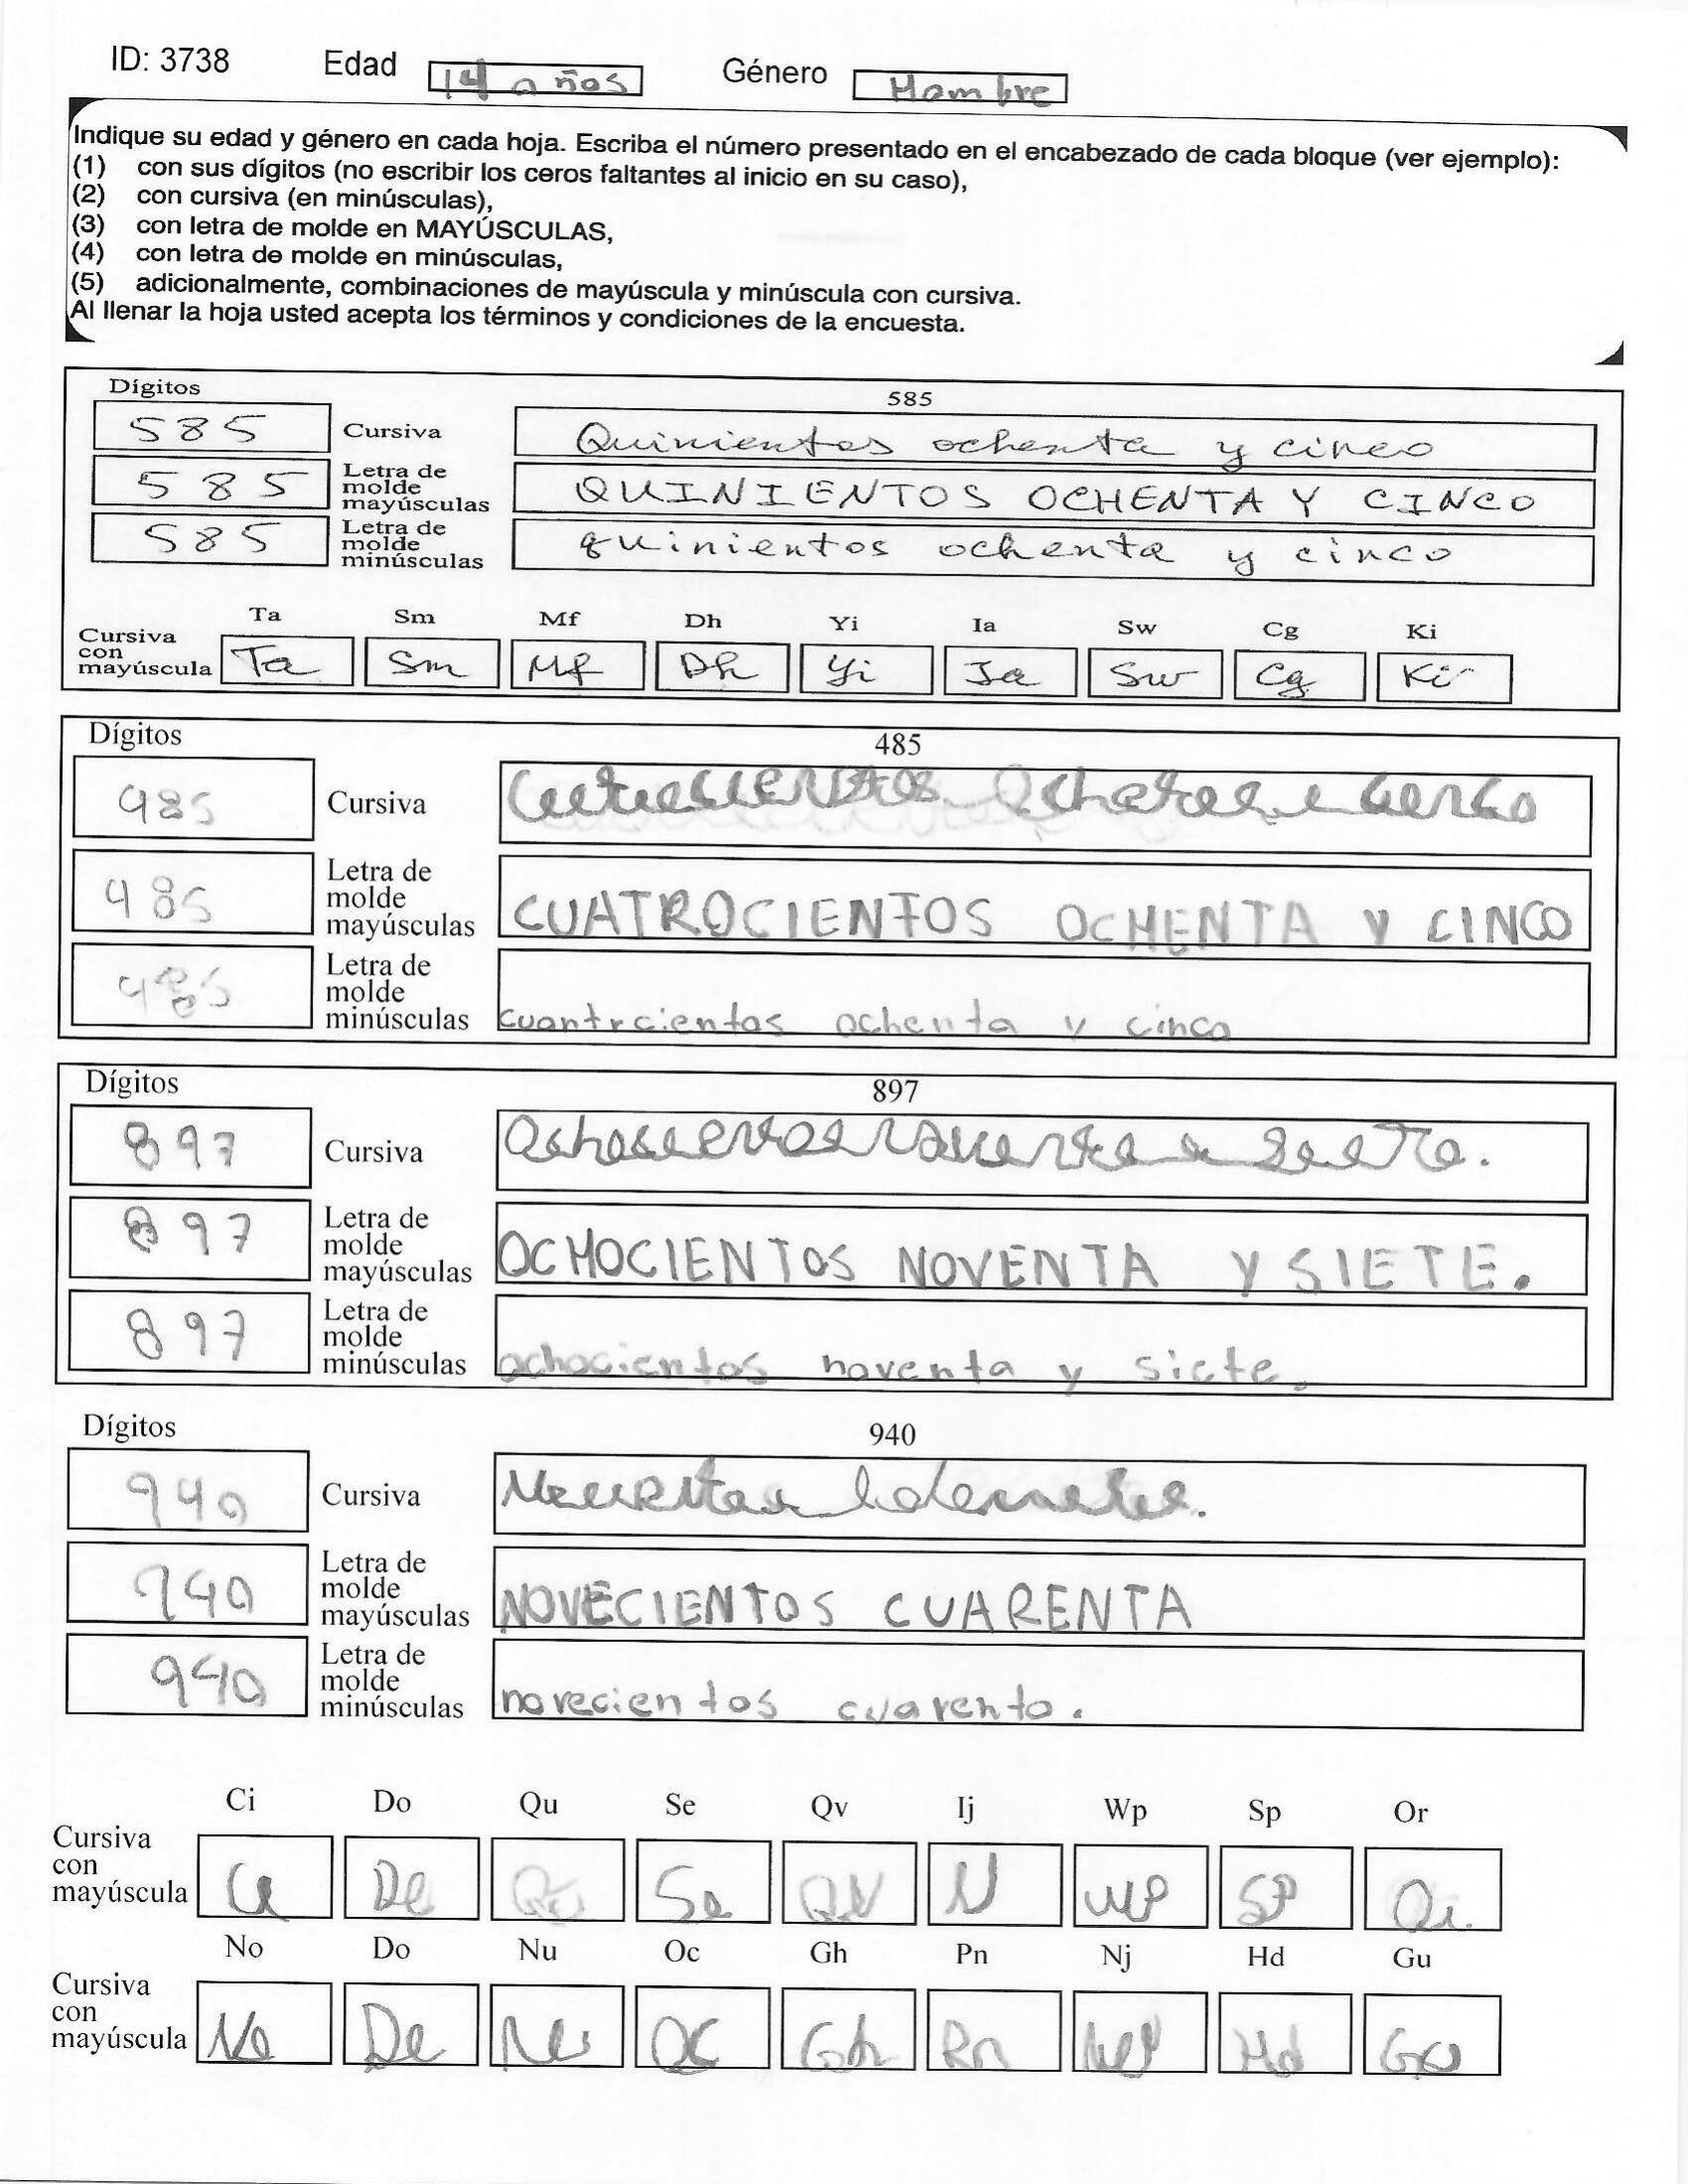 ID: 3738 Edad 14 años Género Hombre
Indique su edad y género en cada hoja. Escriba el número presentado en el encabezado de cada bloque (ver ejemplo):
(1) con sus dígitos (no escribir los ceros faltantes al inicio en su caso),
(2) con cursiva (en minúsculas),
(3) con letra de molde en MAYÚSCULAS,
(4) con letra de molde en minúsculas,
(5) adicionalmente, combinaciones de mayúscula y minúscula con cursiva.
Al llenar la hoja usted acepta los términos y condiciones de la encuesta.
Dígitos 585
585 Cursiva Quinientos ochenta y cinco
585 Letra de molde mayúsculas QUINIENTOS OCHENTA Y CINCO
585 Letra de molde minúsculas quinientos ochenta y cinco
Ta Sm Mf Dh Yi Ia Sw Cg Ki
Cursiva con mayúscula Ta Sm Mf Dh Yi Ia Sw Cg Ki
Dígitos 485
485 Cursiva
485 Letra de molde mayúsculas CUATROCIENTOS OCHENTA Y CINCO
485 Letra de molde minúsculas cuantrcientos ochenta y cinco
Dígitos 897
897 Cursiva
897 Letra de molde mayúsculas OCHOCIENTOS NOVENTA Y SIETE.
897 Letra de molde minúsculas ochocientos noventa y siete.
Dígitos 940
940 Cursiva
940 Letra de molde mayúsculas NOVECIENTOS CUARENTA
940 Letra de molde minúsculas novecientos cuarenta.
Ci Do Qu Se Qv Ij Wp Sp Or
Cursiva con mayúscula Ci De Se QV WP SP
No Do Nu Oc Gh Pn Nj Hd Gu
Cursiva con mayúscula No De Nu OC Gh Pn Hd Gu